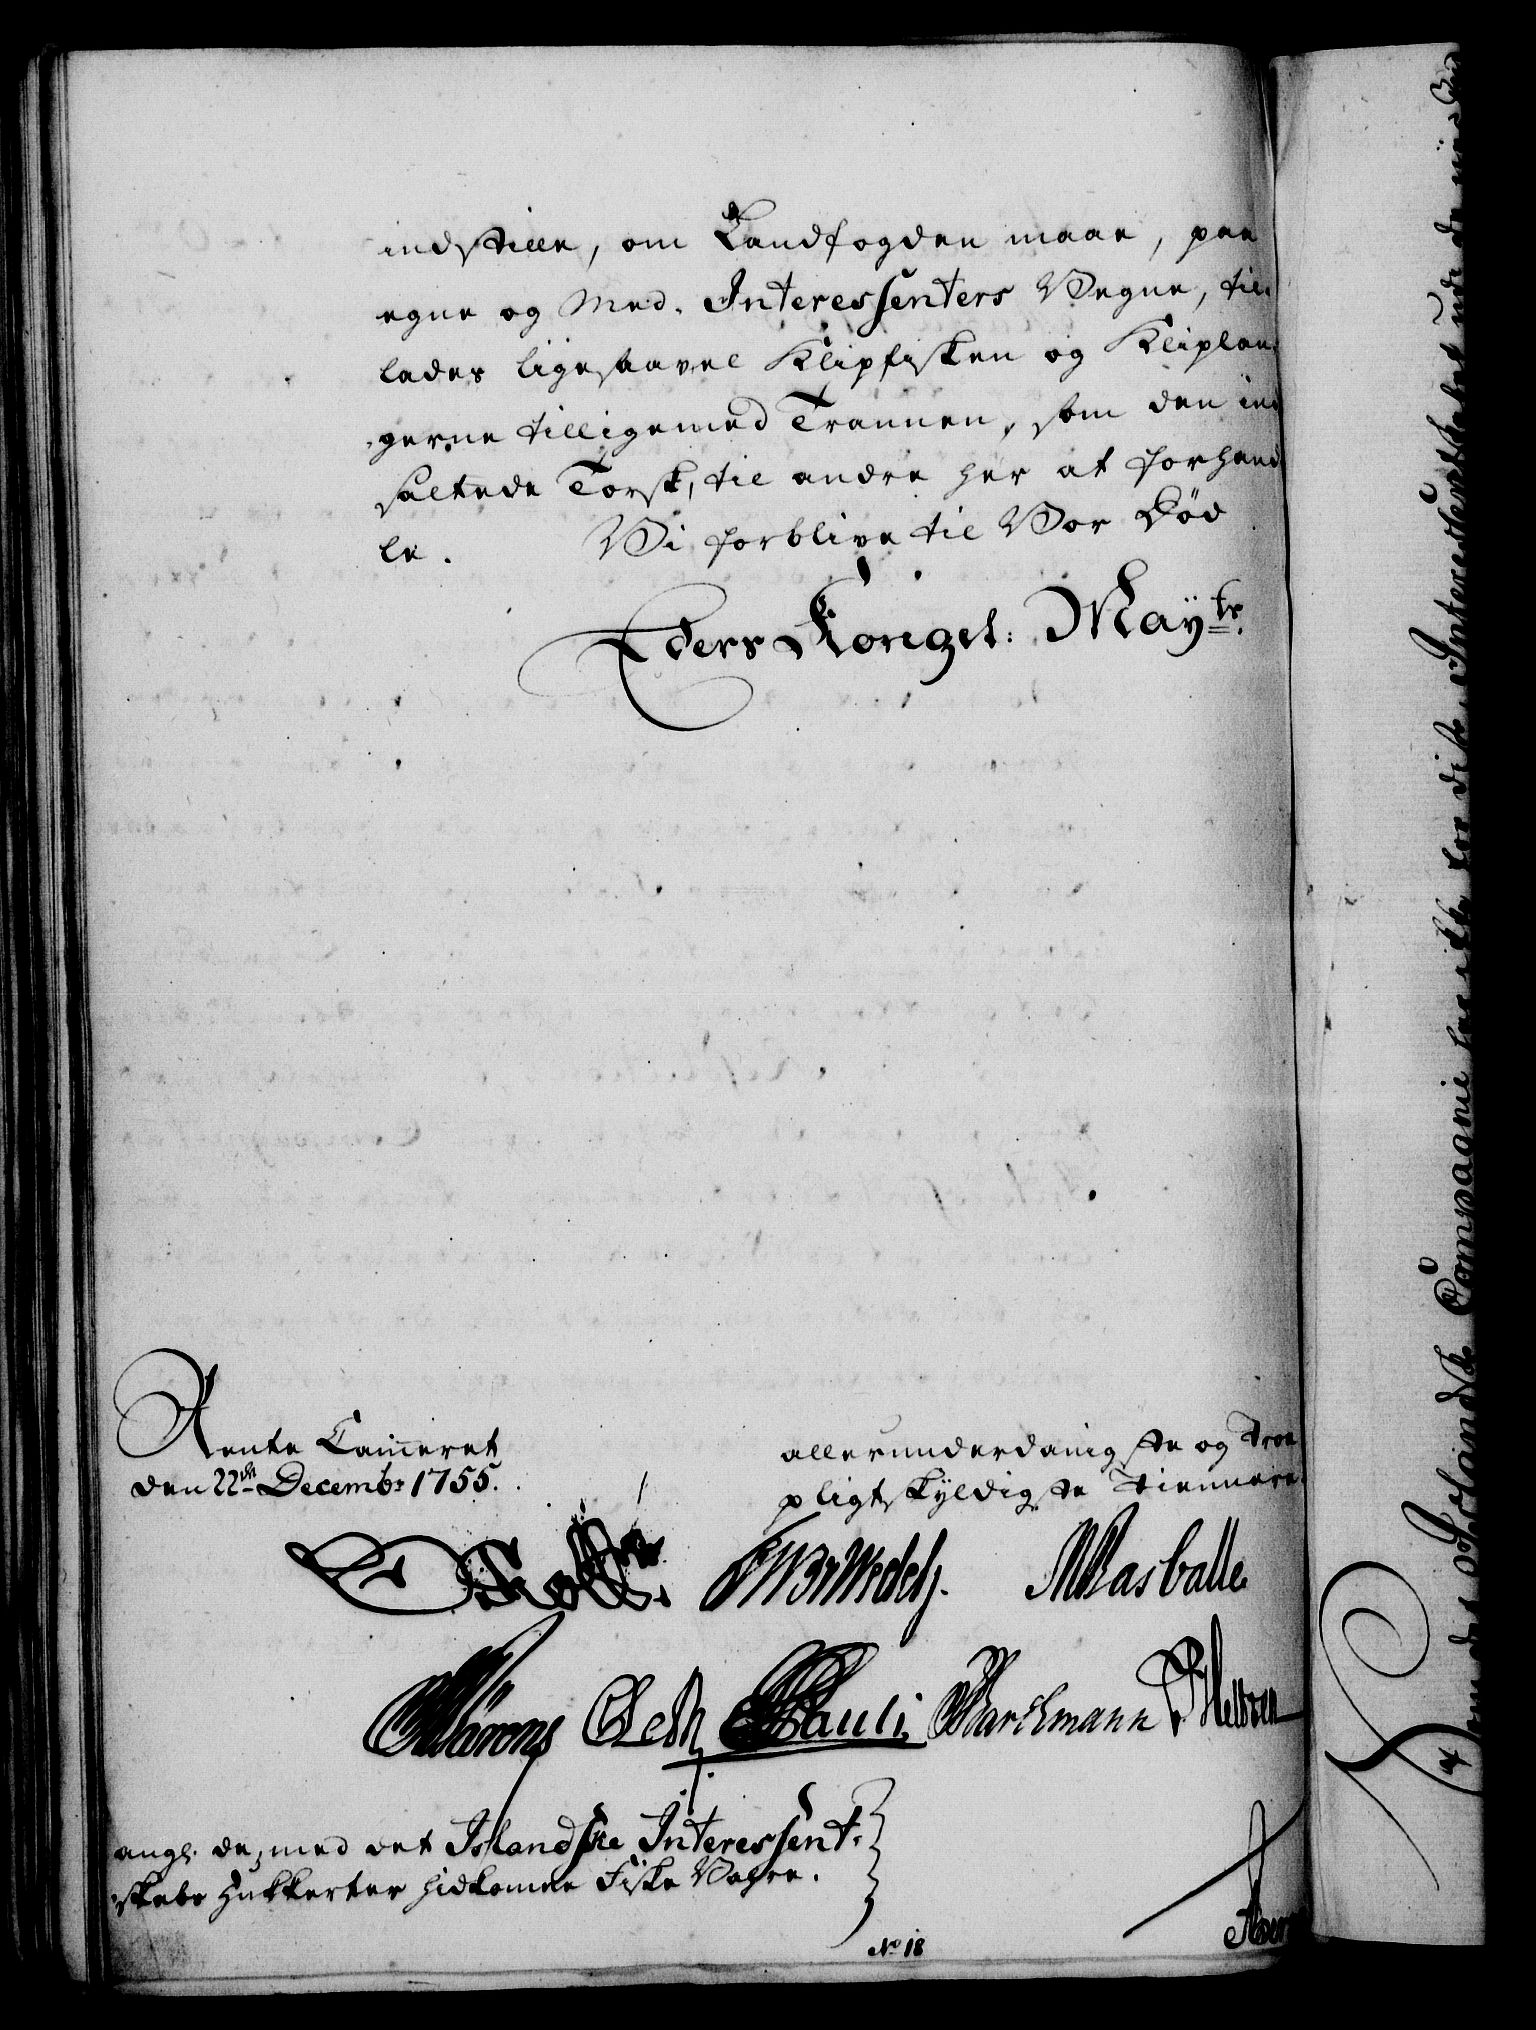 indstille, om Landfogden maae, paa
egne og Med-Interessenters Vegne, til-
lades ligesaavel Klipfisken og Kliplan-
gerne tilligemed Trannen, som den ind
saltede Torsk, til andre her at forhand-
le. Vi forblive til Vor Død
Eders Kongel: Mayts.
Rente Cammeret
den 22de Decembr 1755.
allerunderdanigste og troe
pligtskyldigste Tiennere.
Rasballe
Pauli
Barchmann
angl. de, med det Islandske Interessent-
skabs Hukkerter hidkomne Fiske Vahre.
No 18
det Islandske Compagnie
Interessentskabet